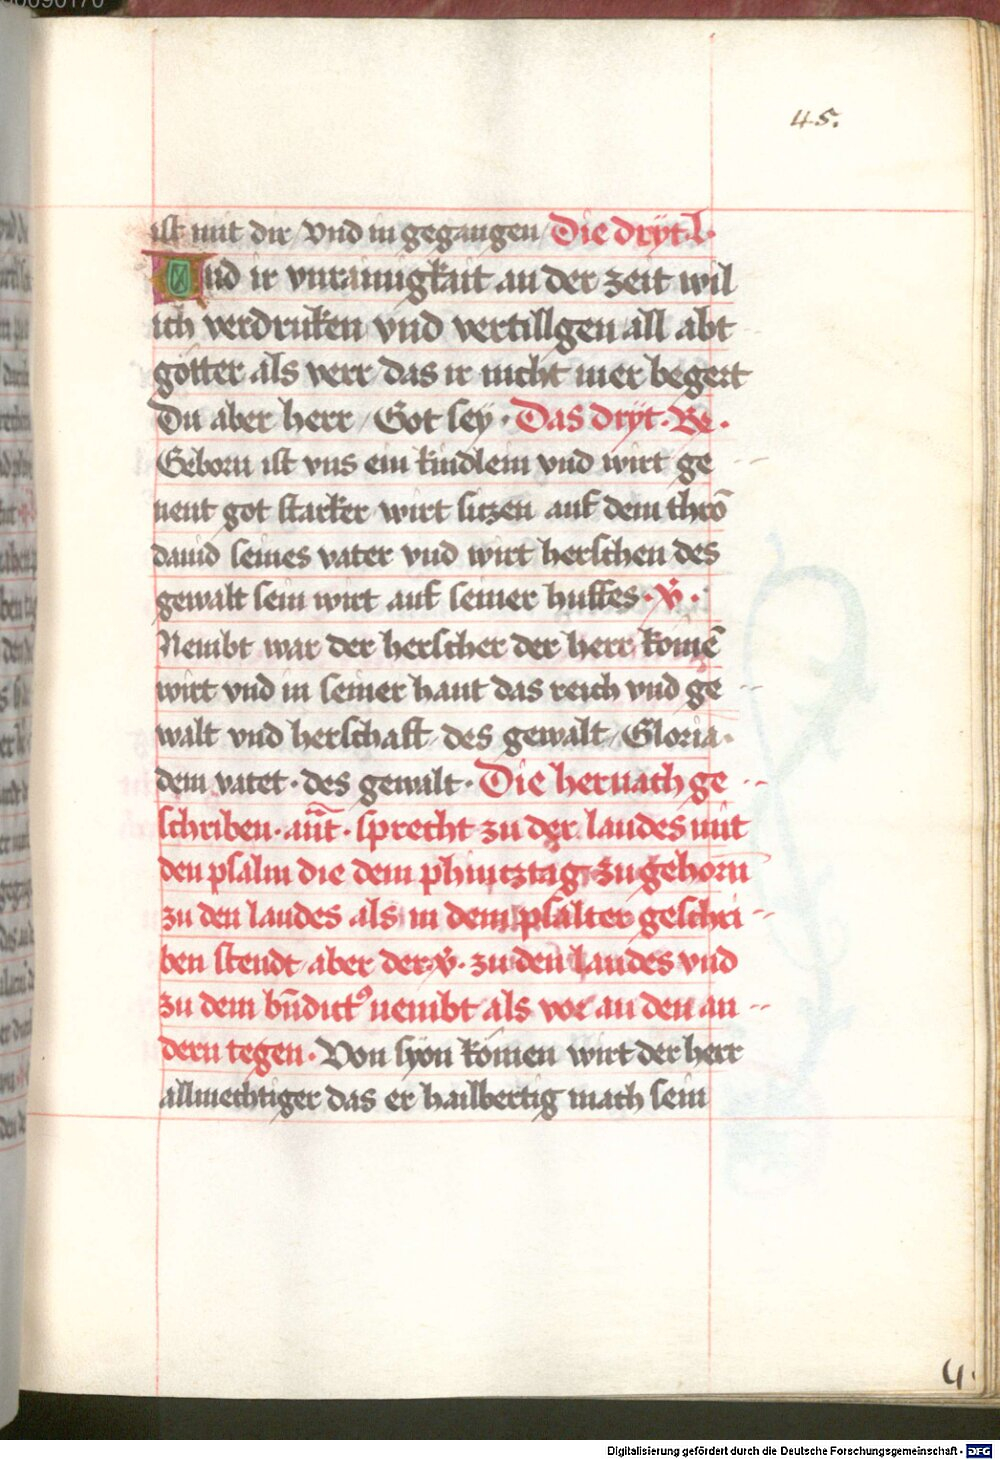 45.
ist mit dir / Vnd in gegangen / Die dryt · L ·
Vnd ir vnrainigkait an der zeit wil
ich verdruken vnd vertillgen all abt
götter als verr / das ir nicht mer begert
Du aber herr / Got sey · Das dryt · Re ·
Geborn ist vns ein kindlein vnd wirt ge
nent got starker wirt sitzen auf dem thrō
dauid seines vater vnd wirt herschen des
gewalt sein wirt auf seiner huffes · V̊ ·
Nembt war der herscher der herr komē
wirt vnd in seiner hant das reich vnd ge
walt vnd herschafft / des gewalt / Gloria ·
dem vatet · des gewalt · Die hernach ge
schriben · ant̄ · sprecht zu der laudes mit
den psalm die dem phintztag zu gehorn
zu den laudes als in dem psalter geschri
ben stendt / aber der · v̊ · zu den Laudes vnd
zu dem bn̄dict⁹ nembt als vor an den an
dern tegen · Von syon kömen wirt der herr
allmechtiger das er hailbertig mach sein
4.
Digitalisierung gefördert durch die Deutsche Forschungsgemeinschaft - DFG